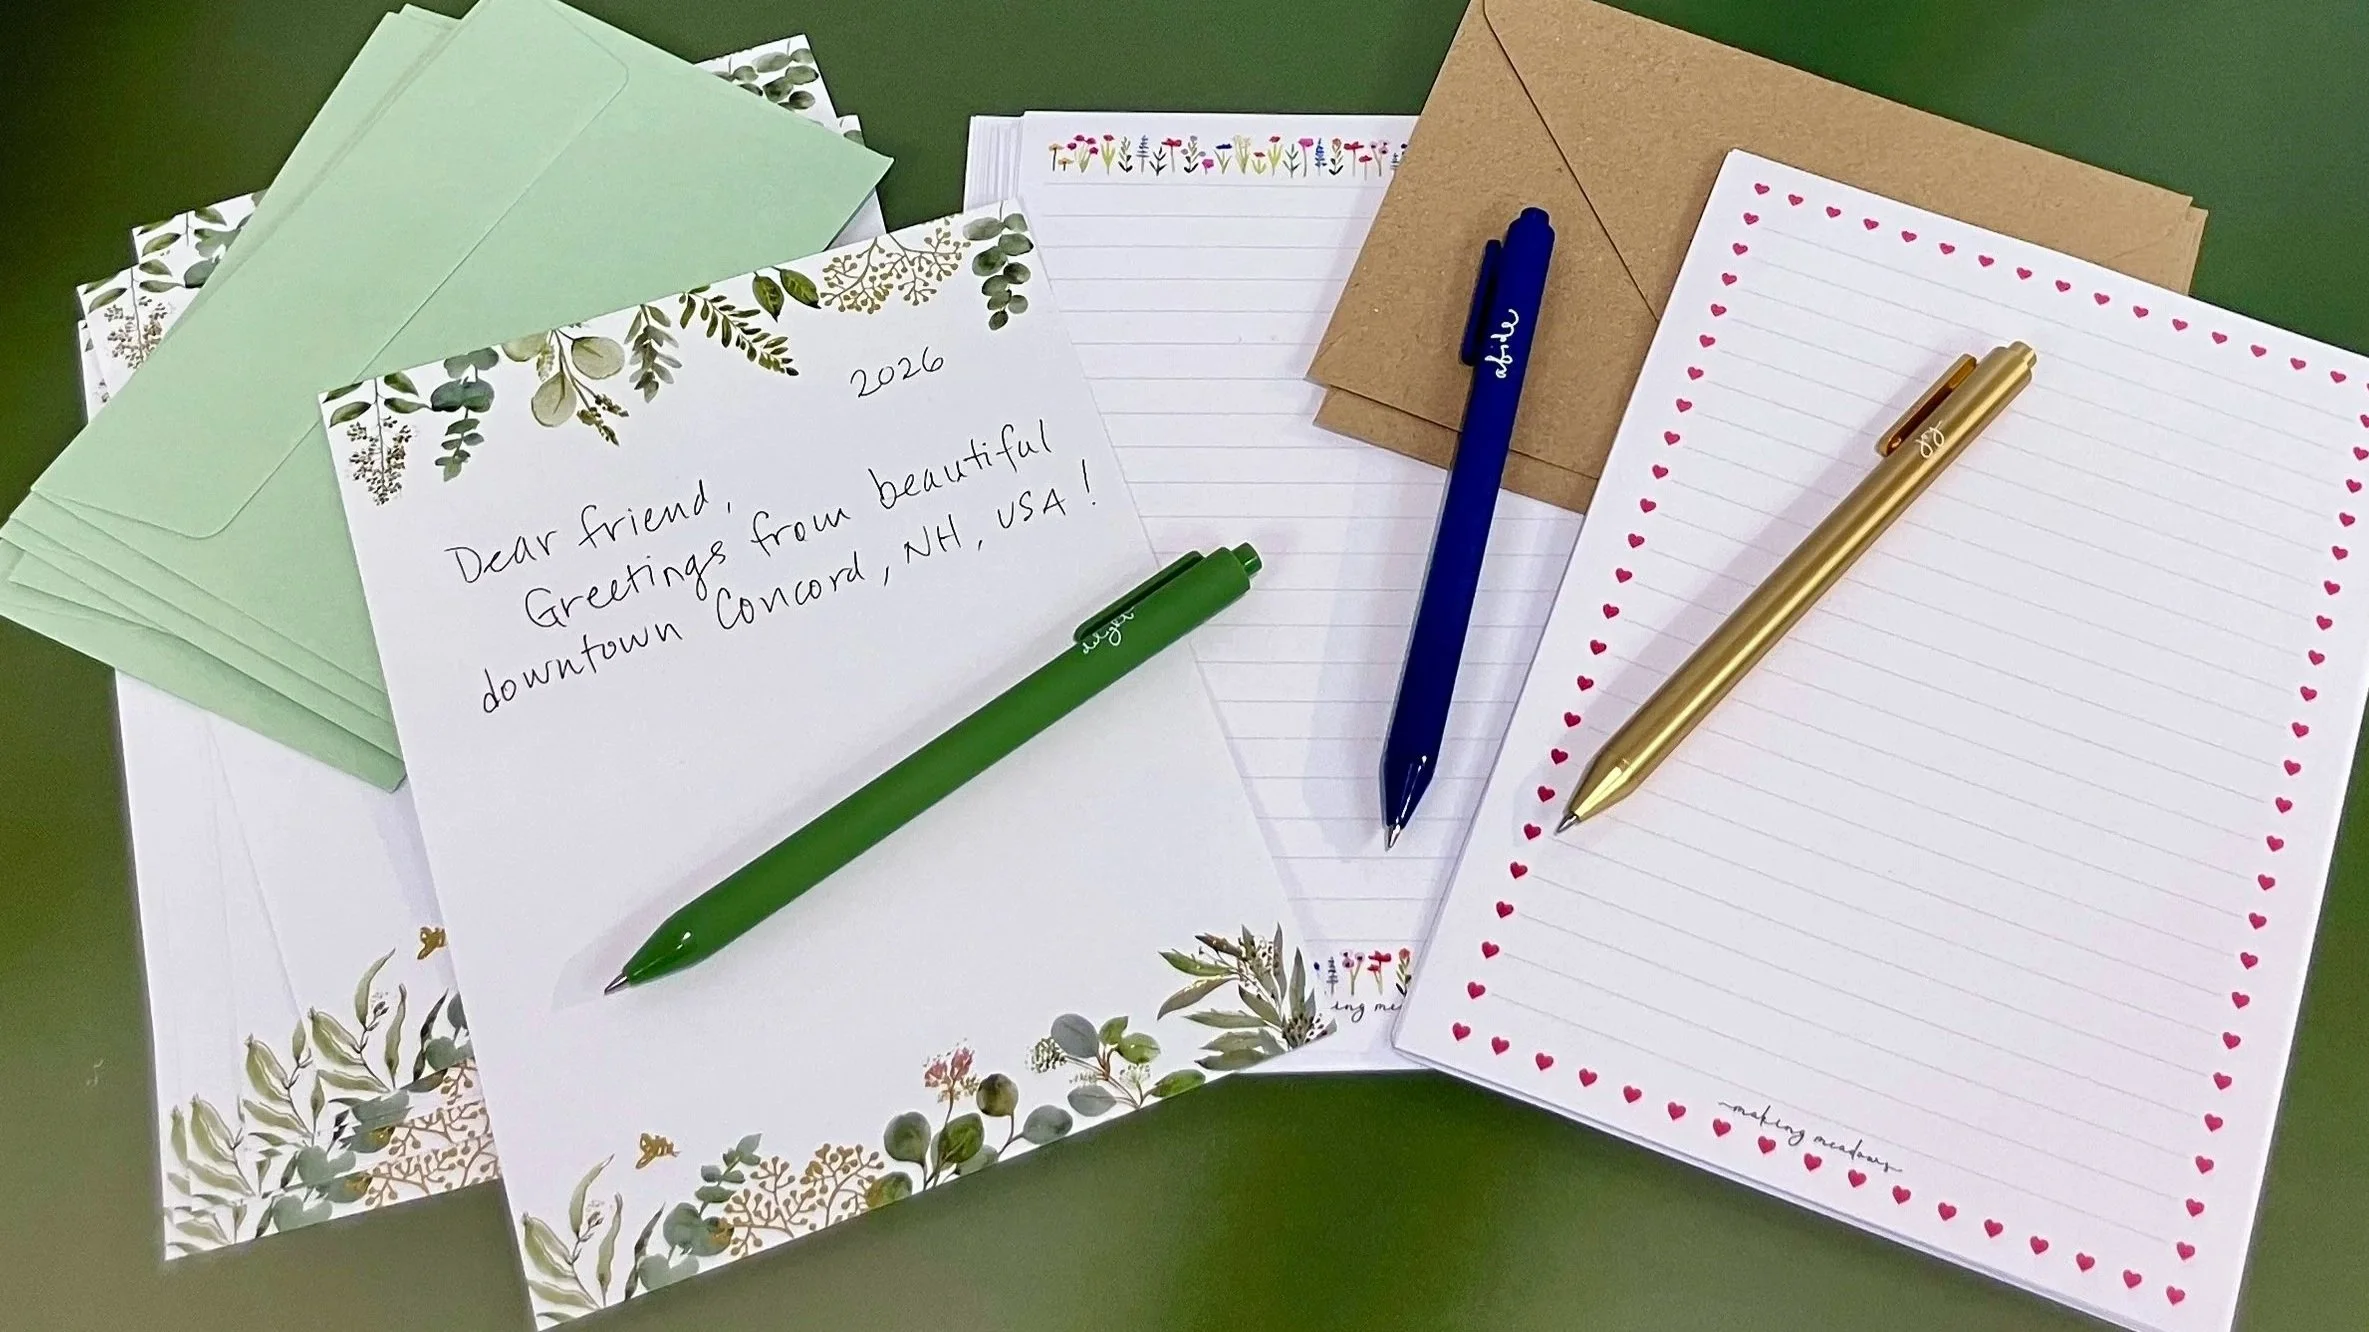 2026
Dear friend,
Greetings from beautiful
downtown Concord, NH, USA!
abide
joy
ing me
making meadows